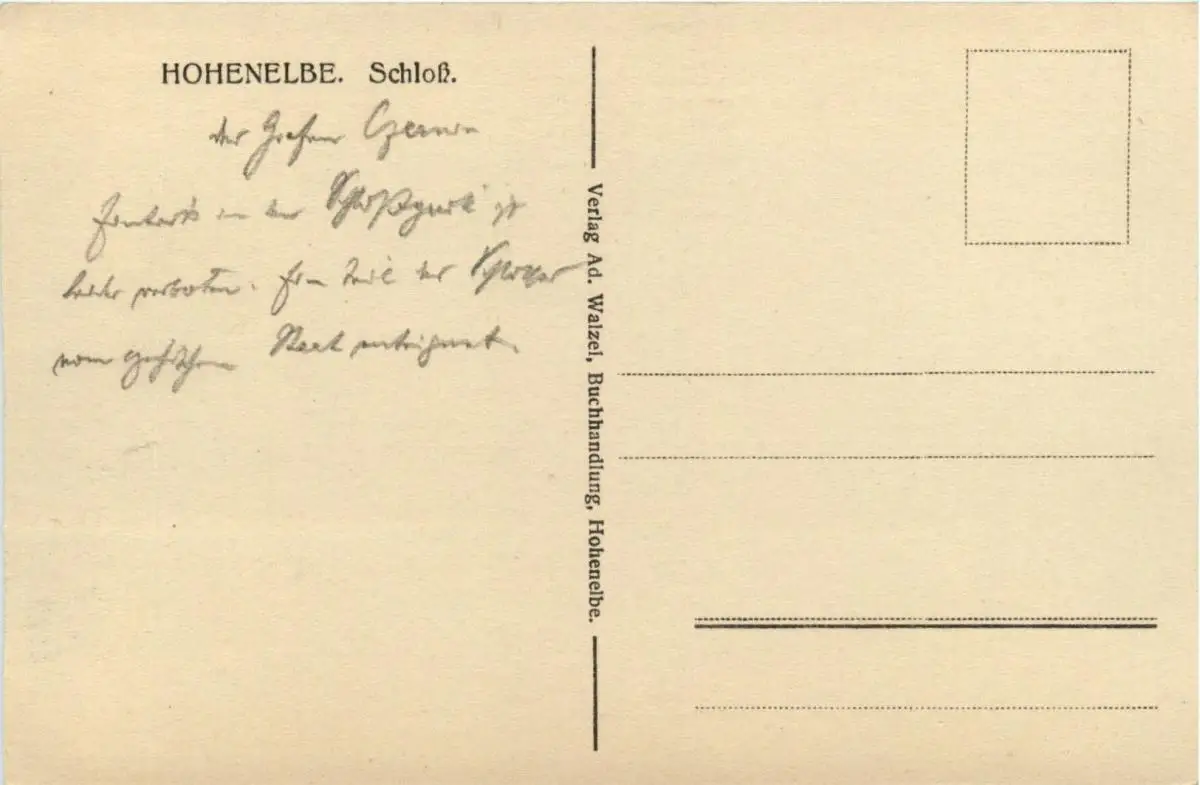 HOHENELBE. Schloß.
der Grafen Czernin
in der Schloßpark ist
leider verboten. Ein Teil des
vom Staat enteignet.
Verlag Ad. Walzel, Buchhandlung, Hohenelbe.